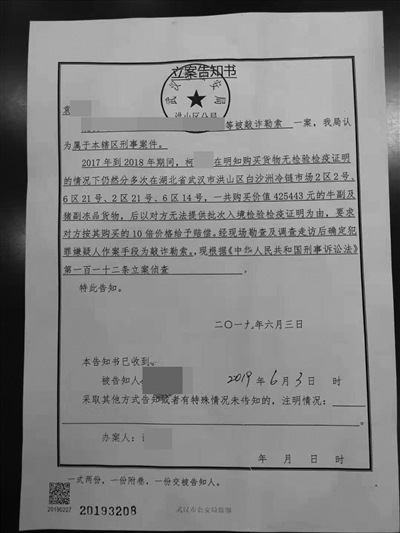 立案告知书
武汉 安局
洪山区分局
袁
等被敲诈勒索 一案，我局认
为属于本辖区刑事案件。
2017年到2018年期间，柯 在明知购买货物无检验检疫证明
的情况下仍然分多次在湖北省武汉市洪山区白沙洲冷链市场2区2号、
6区21号、2区21号、6区14号，一共购买价值425443元的牛副及
猪副冻品货物，后以对方无法提供批次入境检验检疫证明为由，要求
对方按其购买的10倍价格给予赔偿。经现场勘查及调查走访后确定犯
罪嫌疑人作案手段为敲诈勒索。，现根据《中华人民共和国刑事诉讼法》
第一百一十二条立案侦查 。
特此告知。
二〇一九年六月三日
本告知书已收到
被告知人 2019年6月3日 时
采取其他方式告知或者有特殊情况未传知的，注明情况：
办案人：
年 月 日 时
一式两份，一份附卷，一份交被告知人。
20190227 20193208 武汉市公安局监制